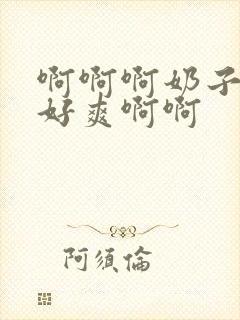 啊啊啊奶子
好爽啊啊
阿須倫